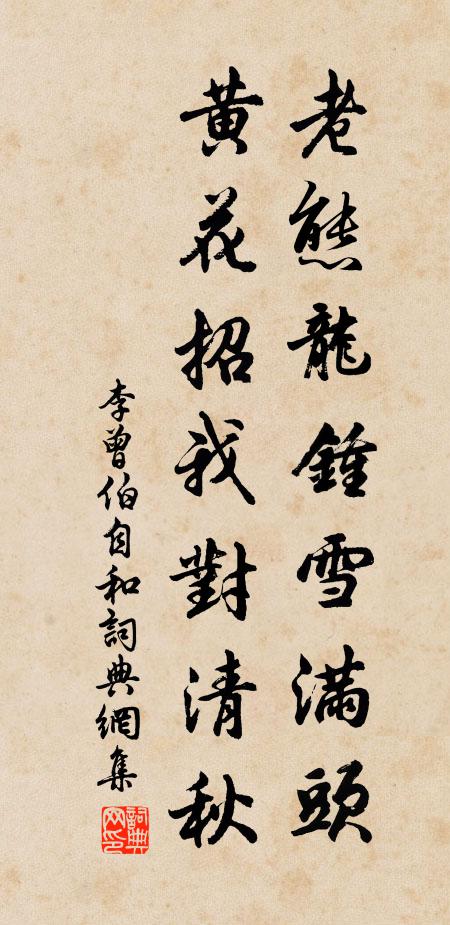 老態龍鍾雪滿頭
黃花招我對清秋
李曾伯自和詞典網集
詞典网印